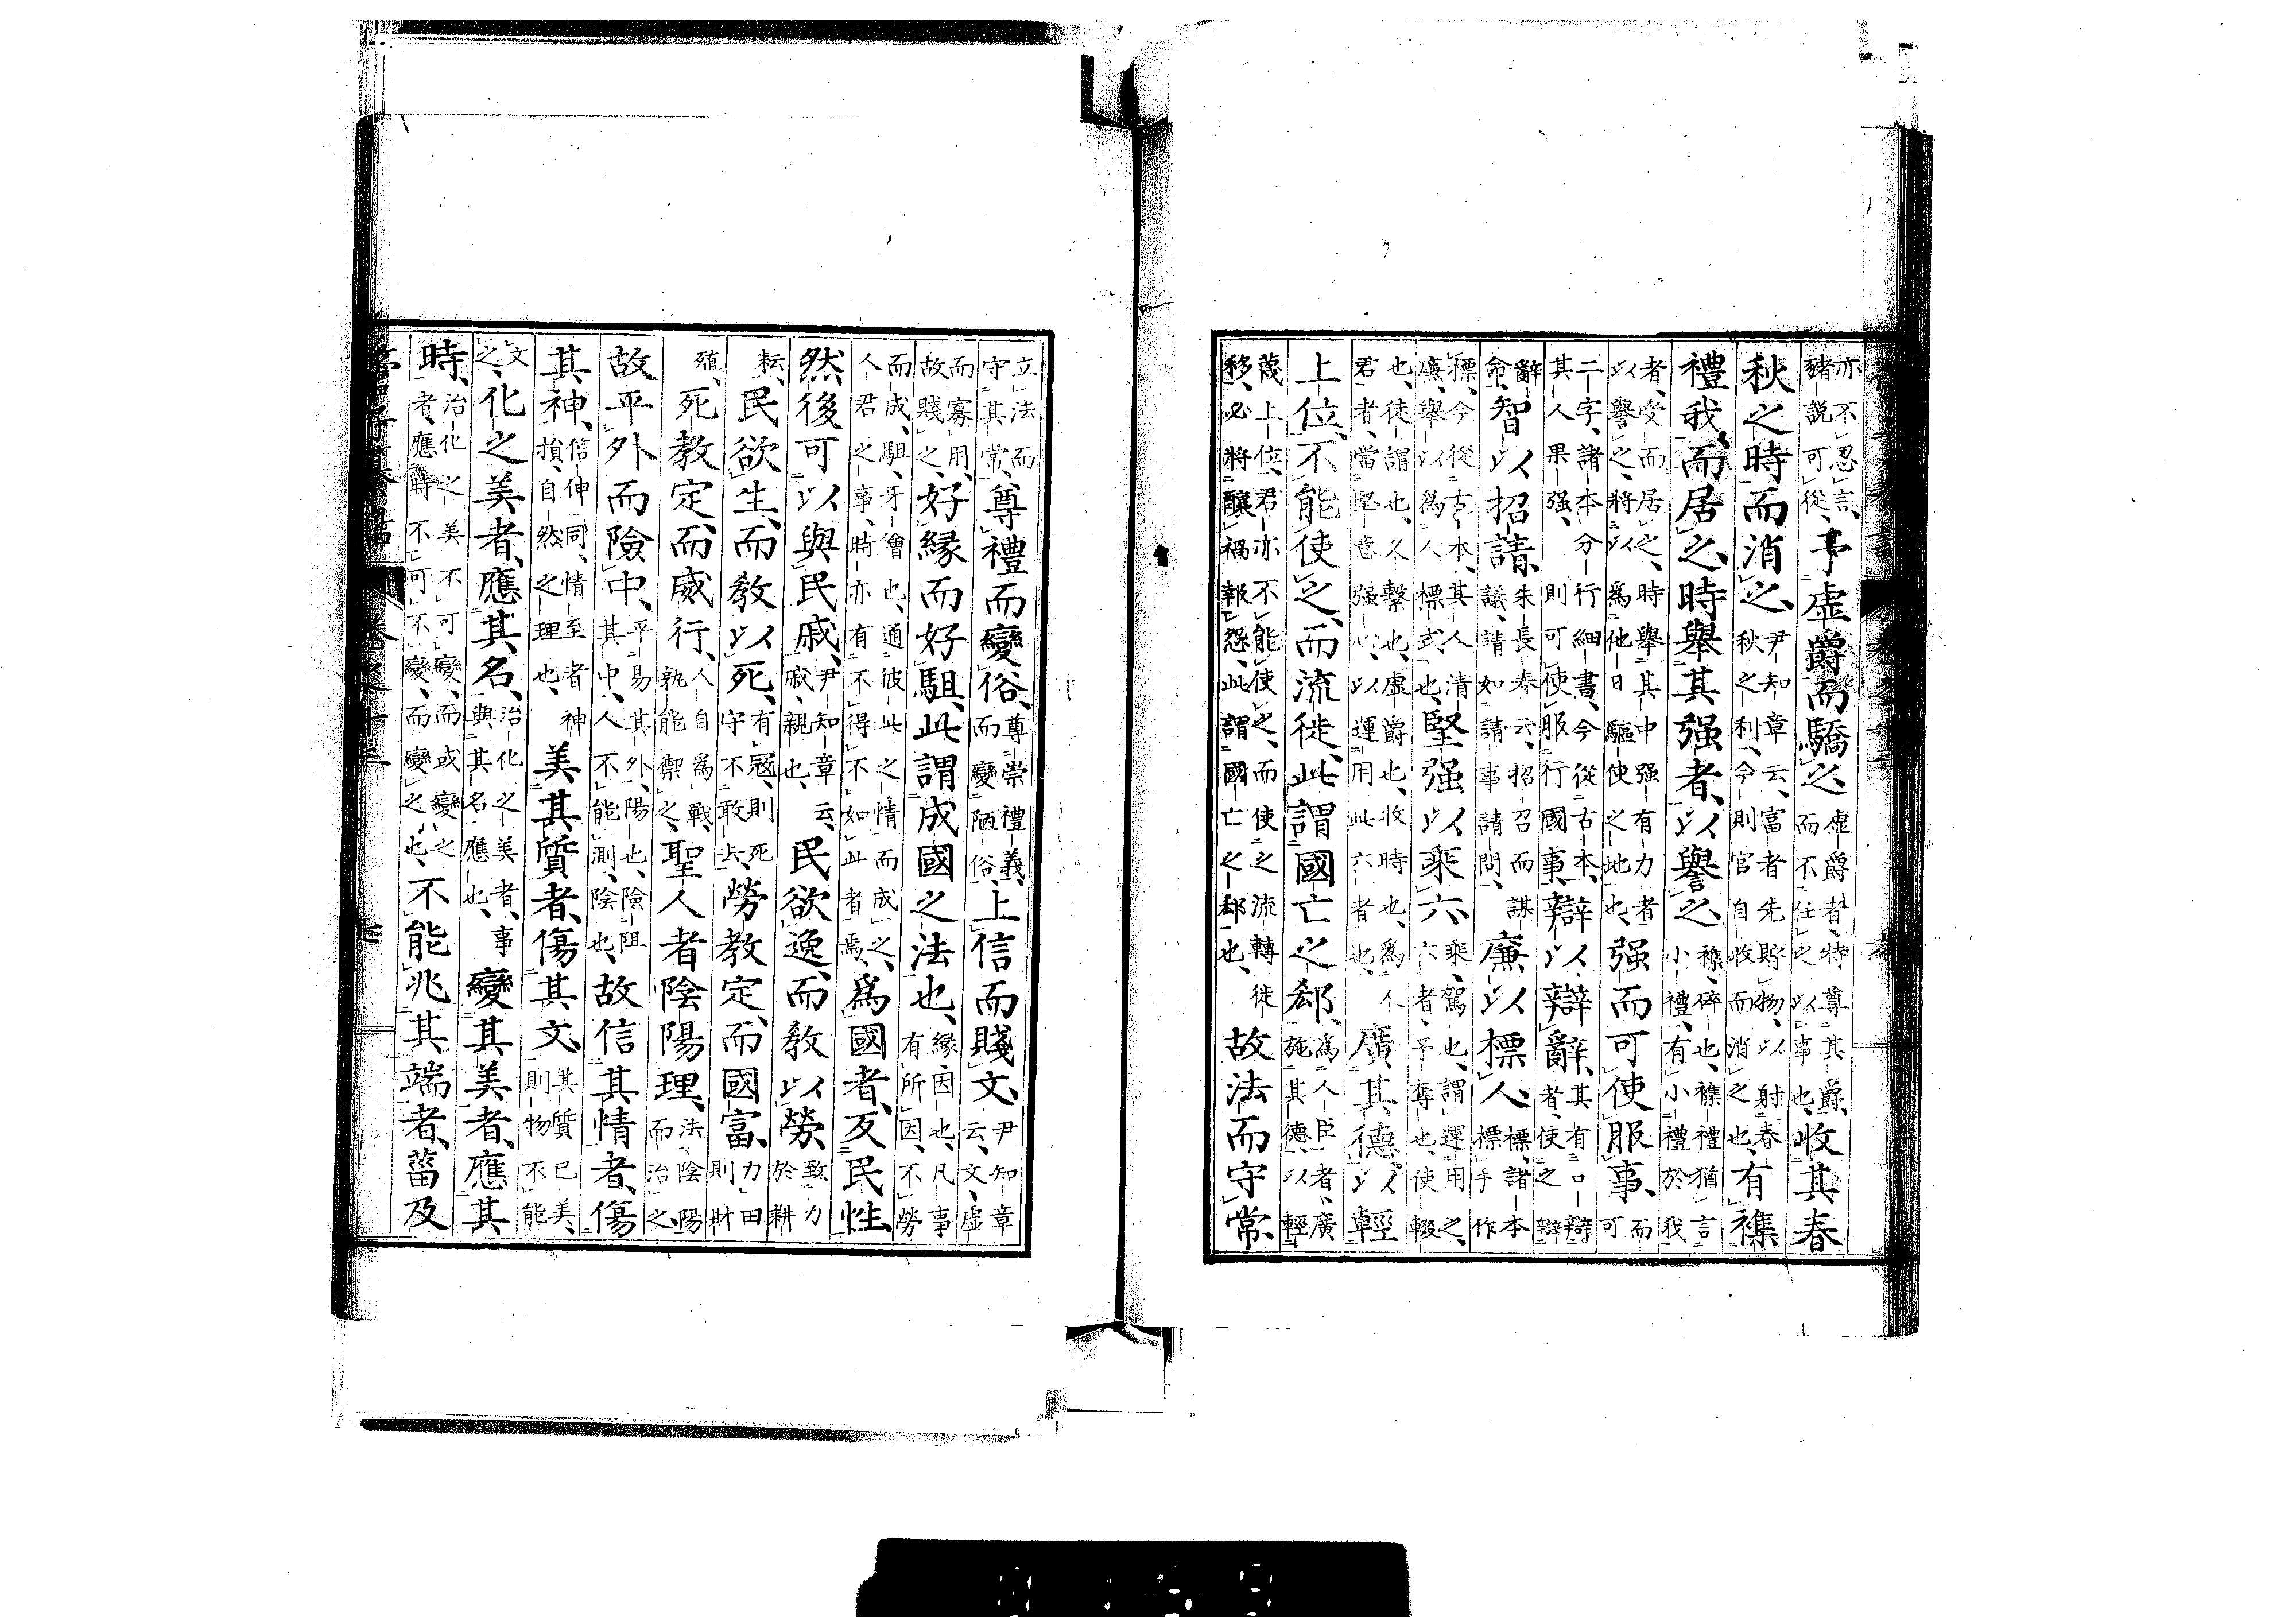 亦不忍言、
豬説可從、
予虚爵而驕之、
虚爵者、特尊其爵、
而不任之以事也、
收其春
秋之時而消之、
尹知章云、富者先貯物、以射春
秋之利、今則官自收而消之也、
有襍
禮我而居之、時舉其强者、以譽之、
襍、碎也、襍禮猶言
小禮、有小禮於我
者、受而居之、時舉其中强有力者
以譽之、將以爲他日驅使之地也、
强而可使服事、
而
可
二字、諸本分行細書、今從古本、
其人果强、則可使服行國事、
辯以辯辭、
其有口辯
者、使之辯
辭
命、
智以招請、
朱長春云、招召而謀
議、請如請事請問、
廉以標人、
標、諸本
標手作
標、今從古本、其人清
廉、舉以爲人標式也、
堅强以乘六、
乘、駕也、謂運用之、
六者、予奪也、使輟
也、徒謂也、久繫也、虚爵也、收時也、爲人
君者、當堅意强心、以運用此六者也、
廣其德、以輕
上位、不能使之、而流徙、此謂國亡之郄、
爲人臣者、廣
施其德、以輕
蔑上位、君亦不能使之、而使之流轉徙
移、必將釀禍報怨、此謂國亡之郄也、
故法而守常、
立法而
守其常、
尊禮而變俗、
尊崇禮義、
而變陋俗、
上信而賤文、
尹知章
云、文、虚
而寡用、
故賤之、
好縁而好駔、此謂成國之法也、
縁、因也、凡事
有所因、不勞
而成、駔、牙儈也、通彼此之情而成之、
人君之事、時亦有不得不如此者焉、
爲國者、反民性、
然後可以與民戚、
尹知章云、
戚、親也、
民欲逸、而教以勞、
致力
於耕
耘、
民欲生、而教以死、
有寇、則死
守不敢去、
勞教定、而國富、
力田
則財
殖、
死教定、而威行、
人自爲戰、
孰能禦之、
聖人者陰陽理、
法陰陽
而治之、
故平外而險中、
平易其外、陽也、險阻
其中、人不能測、陰也、
故信其情者、傷
其神、
信伸同、情至者神
損、自然之理也、
美其質者、傷其文、
其質已美、
則物不能
文
之、
化之美者、應其名、
治化之美者、事
與其名應也、
變其美者、應其
時、
治化之美不可變、而或變之
者、應時不可不變、而變之也、
不能兆其端者、菑及